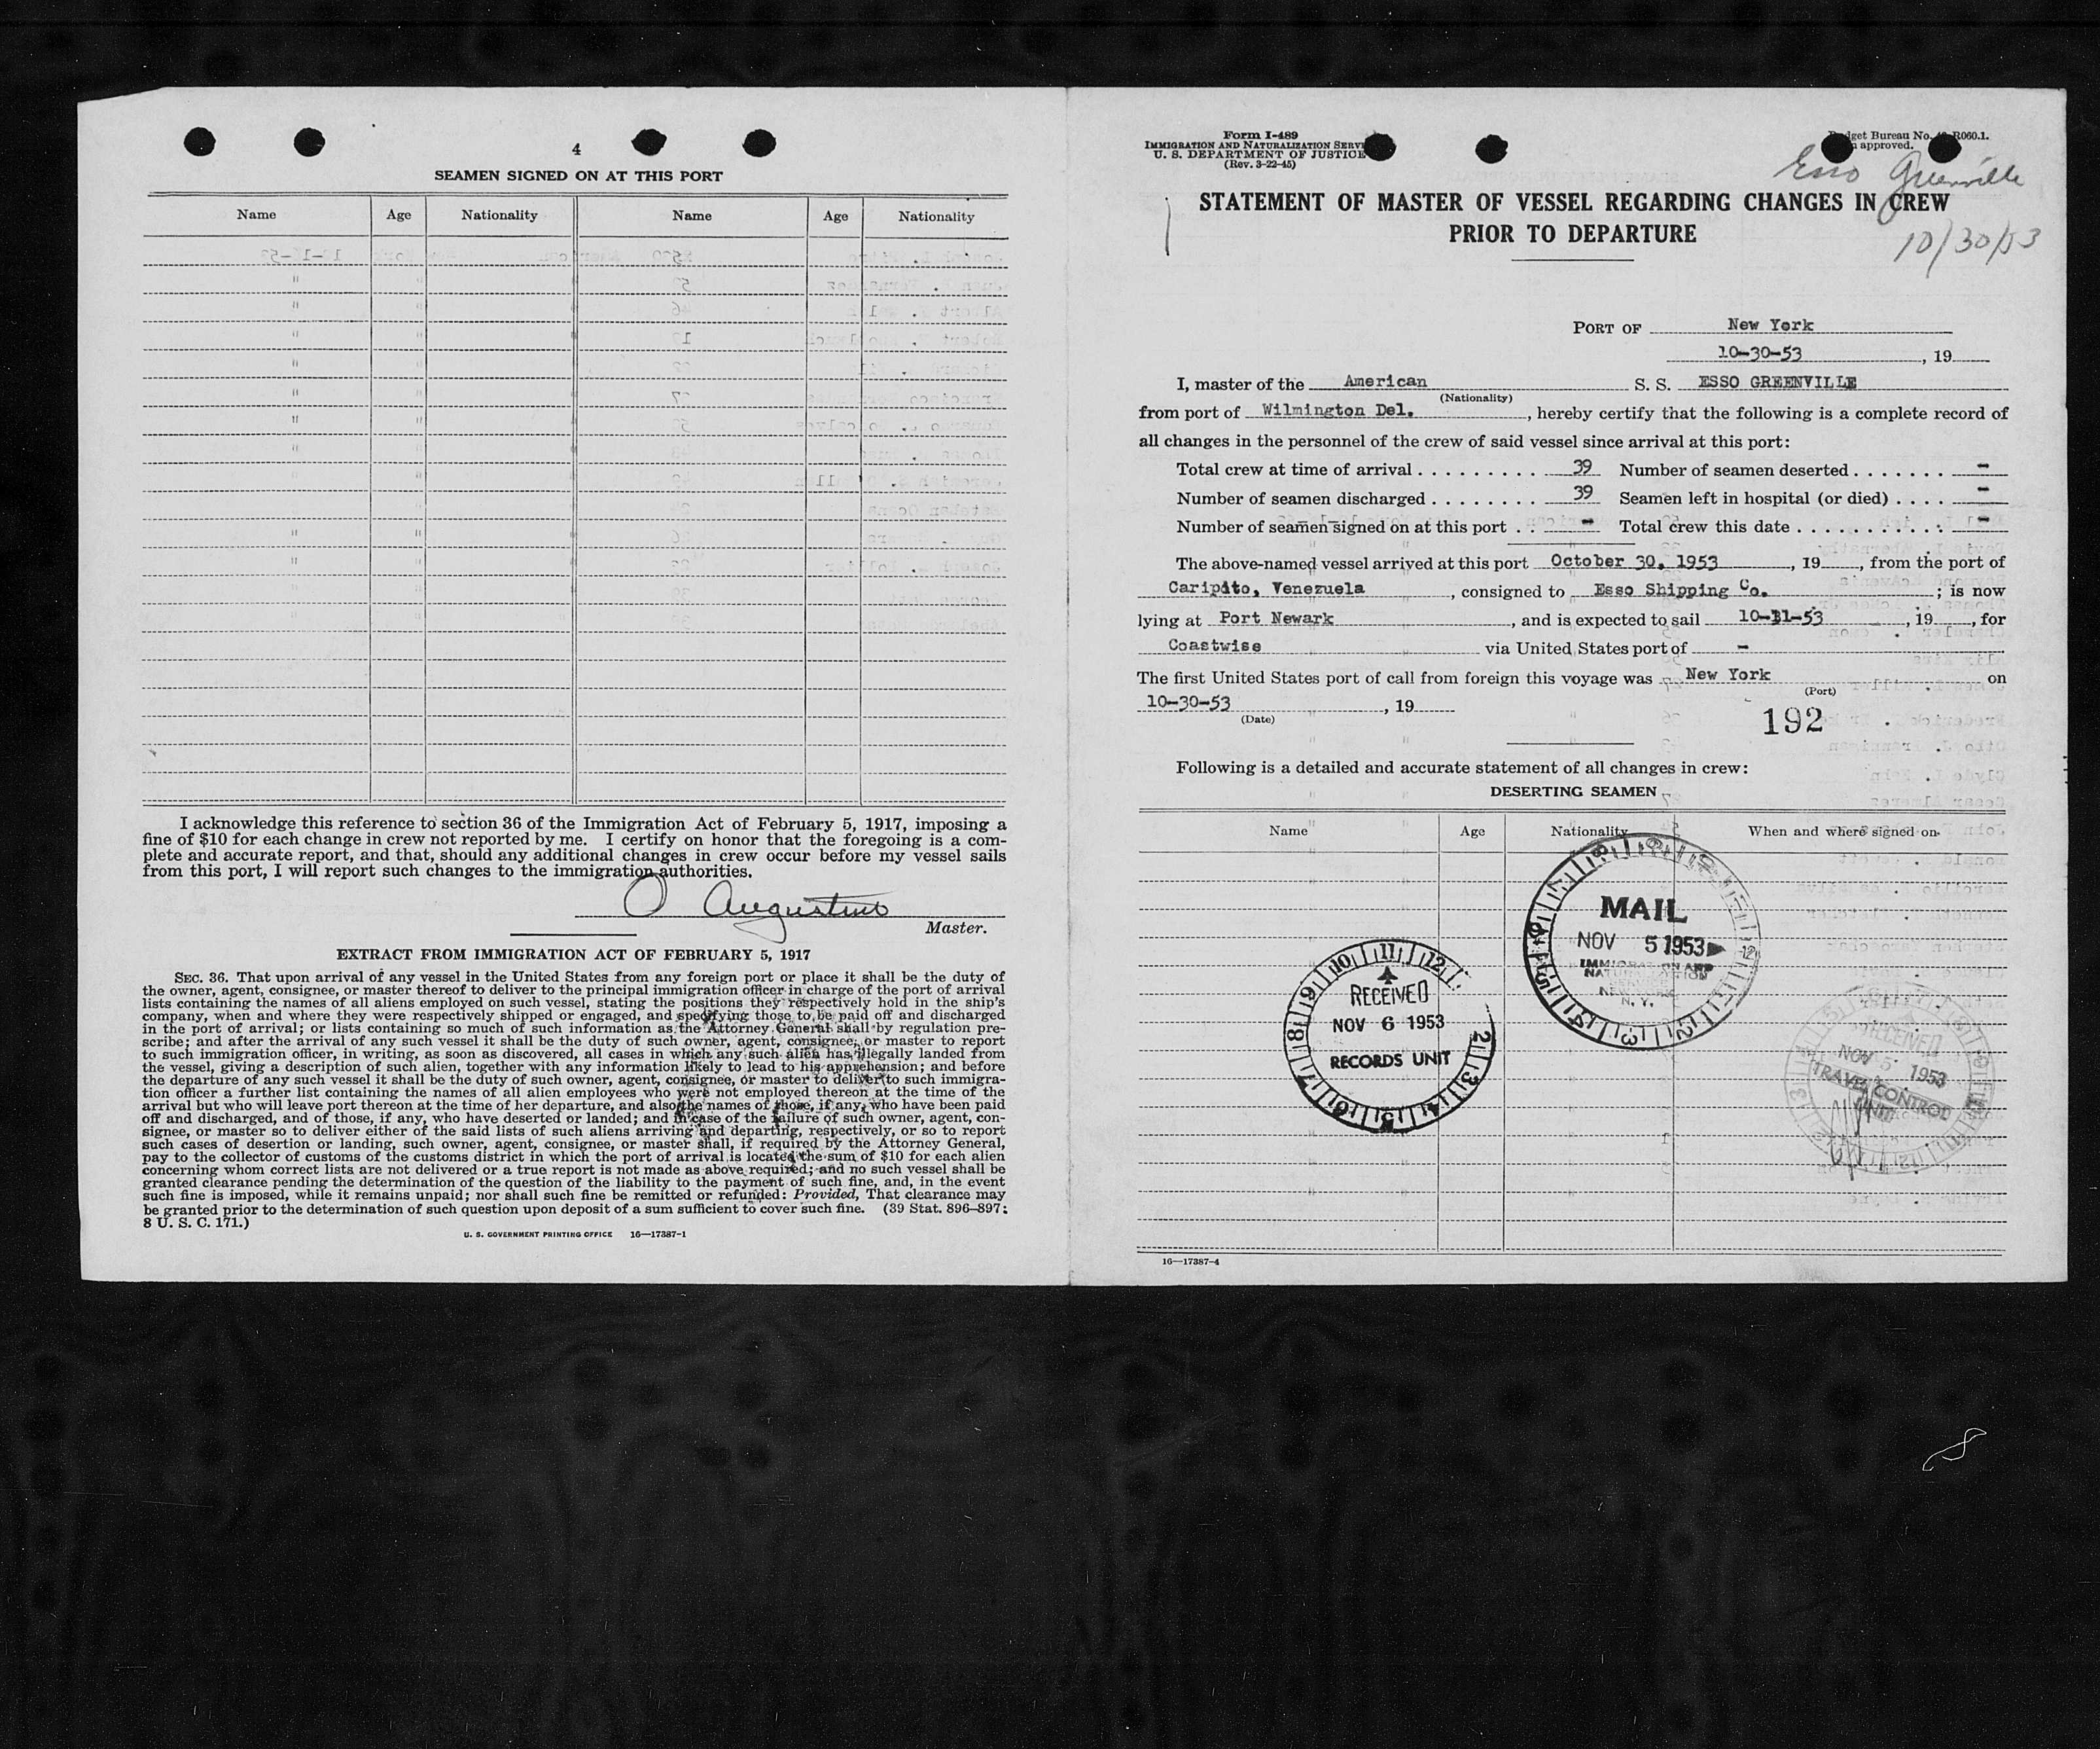 4
SEAMEN SIGNED ON AT THIS PORT
Name Age Nationality Name Age Nationality
I acknowledge this reference to section 36 of the Immigration Act of February 5, 1917, imposing a
fine of $10 for each change in crew not reported by me. I certify on honor that the foregoing is a com-
plete and accurate report, and that, should any additional changes in crew occur before my vessel sails
from this port, I will report such changes to the immigration authorities.
O Augustine
Master.
EXTRACT FROM IMMIGRATION ACT OF FEBRUARY 5, 1917
SEC. 36. That upon arrival of any vessel in the United States from any foreign port or place it shall be the duty of
the owner, agent, consignee, or master thereof to deliver to the principal immigration officer in charge of the port of arrival
lists containing the names of all aliens employed on such vessel, stating the positions they respectively hold in the ship's
company, when and where they were respectively shipped or engaged, and specifying those to be paid off and discharged
in the port of arrival; or lists containing so much of such information as the Attorney General shall by regulation pre-
scribe; and after the arrival of any such vessel it shall be the duty of such owner, agent, consignee, or master to report
to such immigration officer, in writing, as soon as discovered, all cases in which any such alien has illegally landed from
the vessel, giving a description of such alien, together with any information likely to lead to his apprehension; and before
the departure of any such vessel it shall be the duty of such owner, agent, consignee, or master to deliver to such immigra-
tion officer a further list containing the names of all alien employees who were not employed thereon at the time of the
arrival but who will leave port thereon at the time of her departure, and also the names of those, if any, who have been paid
off and discharged, and of those, if any, who have deserted or landed; and in case of the failure of such owner, agent, con-
signee, or master so to deliver either of the said lists of such aliens arriving and departing, respectively, or so to report
such cases of desertion or landing, such owner, agent, consignee, or master shall, if required by the Attorney General,
pay to the collector of customs of the customs district in which the port of arrival is located the sum of $10 for each alien
concerning whom correct lists are not delivered or a true report is not made as above required; and no such vessel shall be
granted clearance pending the determination of the question of the liability to the payment of such fine, and, in the event
such fine is imposed, while it remains unpaid; nor shall such fine be remitted or refunded: Provided, That clearance may
be granted prior to the determination of such question upon deposit of a sum sufficient to cover such fine. (39 Stat. 896–897;
8 U. S. C. 171.)
U. S. GOVERNMENT PRINTING OFFICE 16—17387-1
Form I-489
IMMIGRATION AND NATURALIZATION SERV
U. S. DEPARTMENT OF JUSTICE
(Rev. 3-22-45)
get Bureau No. R060.1.
approved.
Esso Greenville
10/30/53
STATEMENT OF MASTER OF VESSEL REGARDING CHANGES IN CREW
PRIOR TO DEPARTURE
PORT OF New York
10-30-53, 19
I, master of the American S. S. ESSO GREENVILLE
(Nationality)
from port of Wilmington Del., hereby certify that the following is a complete record of
all changes in the personnel of the crew of said vessel since arrival at this port:
Total crew at time of arrival . . . . . . . . . . 39 Number of seamen deserted . . . . . . . -
Number of seamen discharged . . . . . . . . 39 Seamen left in hospital (or died) . . . . -
Number of seamen signed on at this port . . - Total crew this date . . . . . . . . . . . -
The above-named vessel arrived at this port October 30, 1953, 19, from the port of
Caripito, Venezuela, consigned to Esso Shipping Co.; is now
lying at Port Newark, and is expected to sail 10-31-53, 19, for
Coastwise via United States port of -
The first United States port of call from foreign this voyage was New York on
(Port)
10-30-53, 19
(Date)
192
Following is a detailed and accurate statement of all changes in crew:
DESERTING SEAMEN
Name Age Nationality When and where signed on
MAIL
NOV 5 1953
IMMIGRATION AND
N. Y.
RECEIVED
NOV 6 1953
RECORDS UNIT
RECEIVED
NOV 5 1953
TRAVEL CONTROL
UNIT
16—17387-4
8